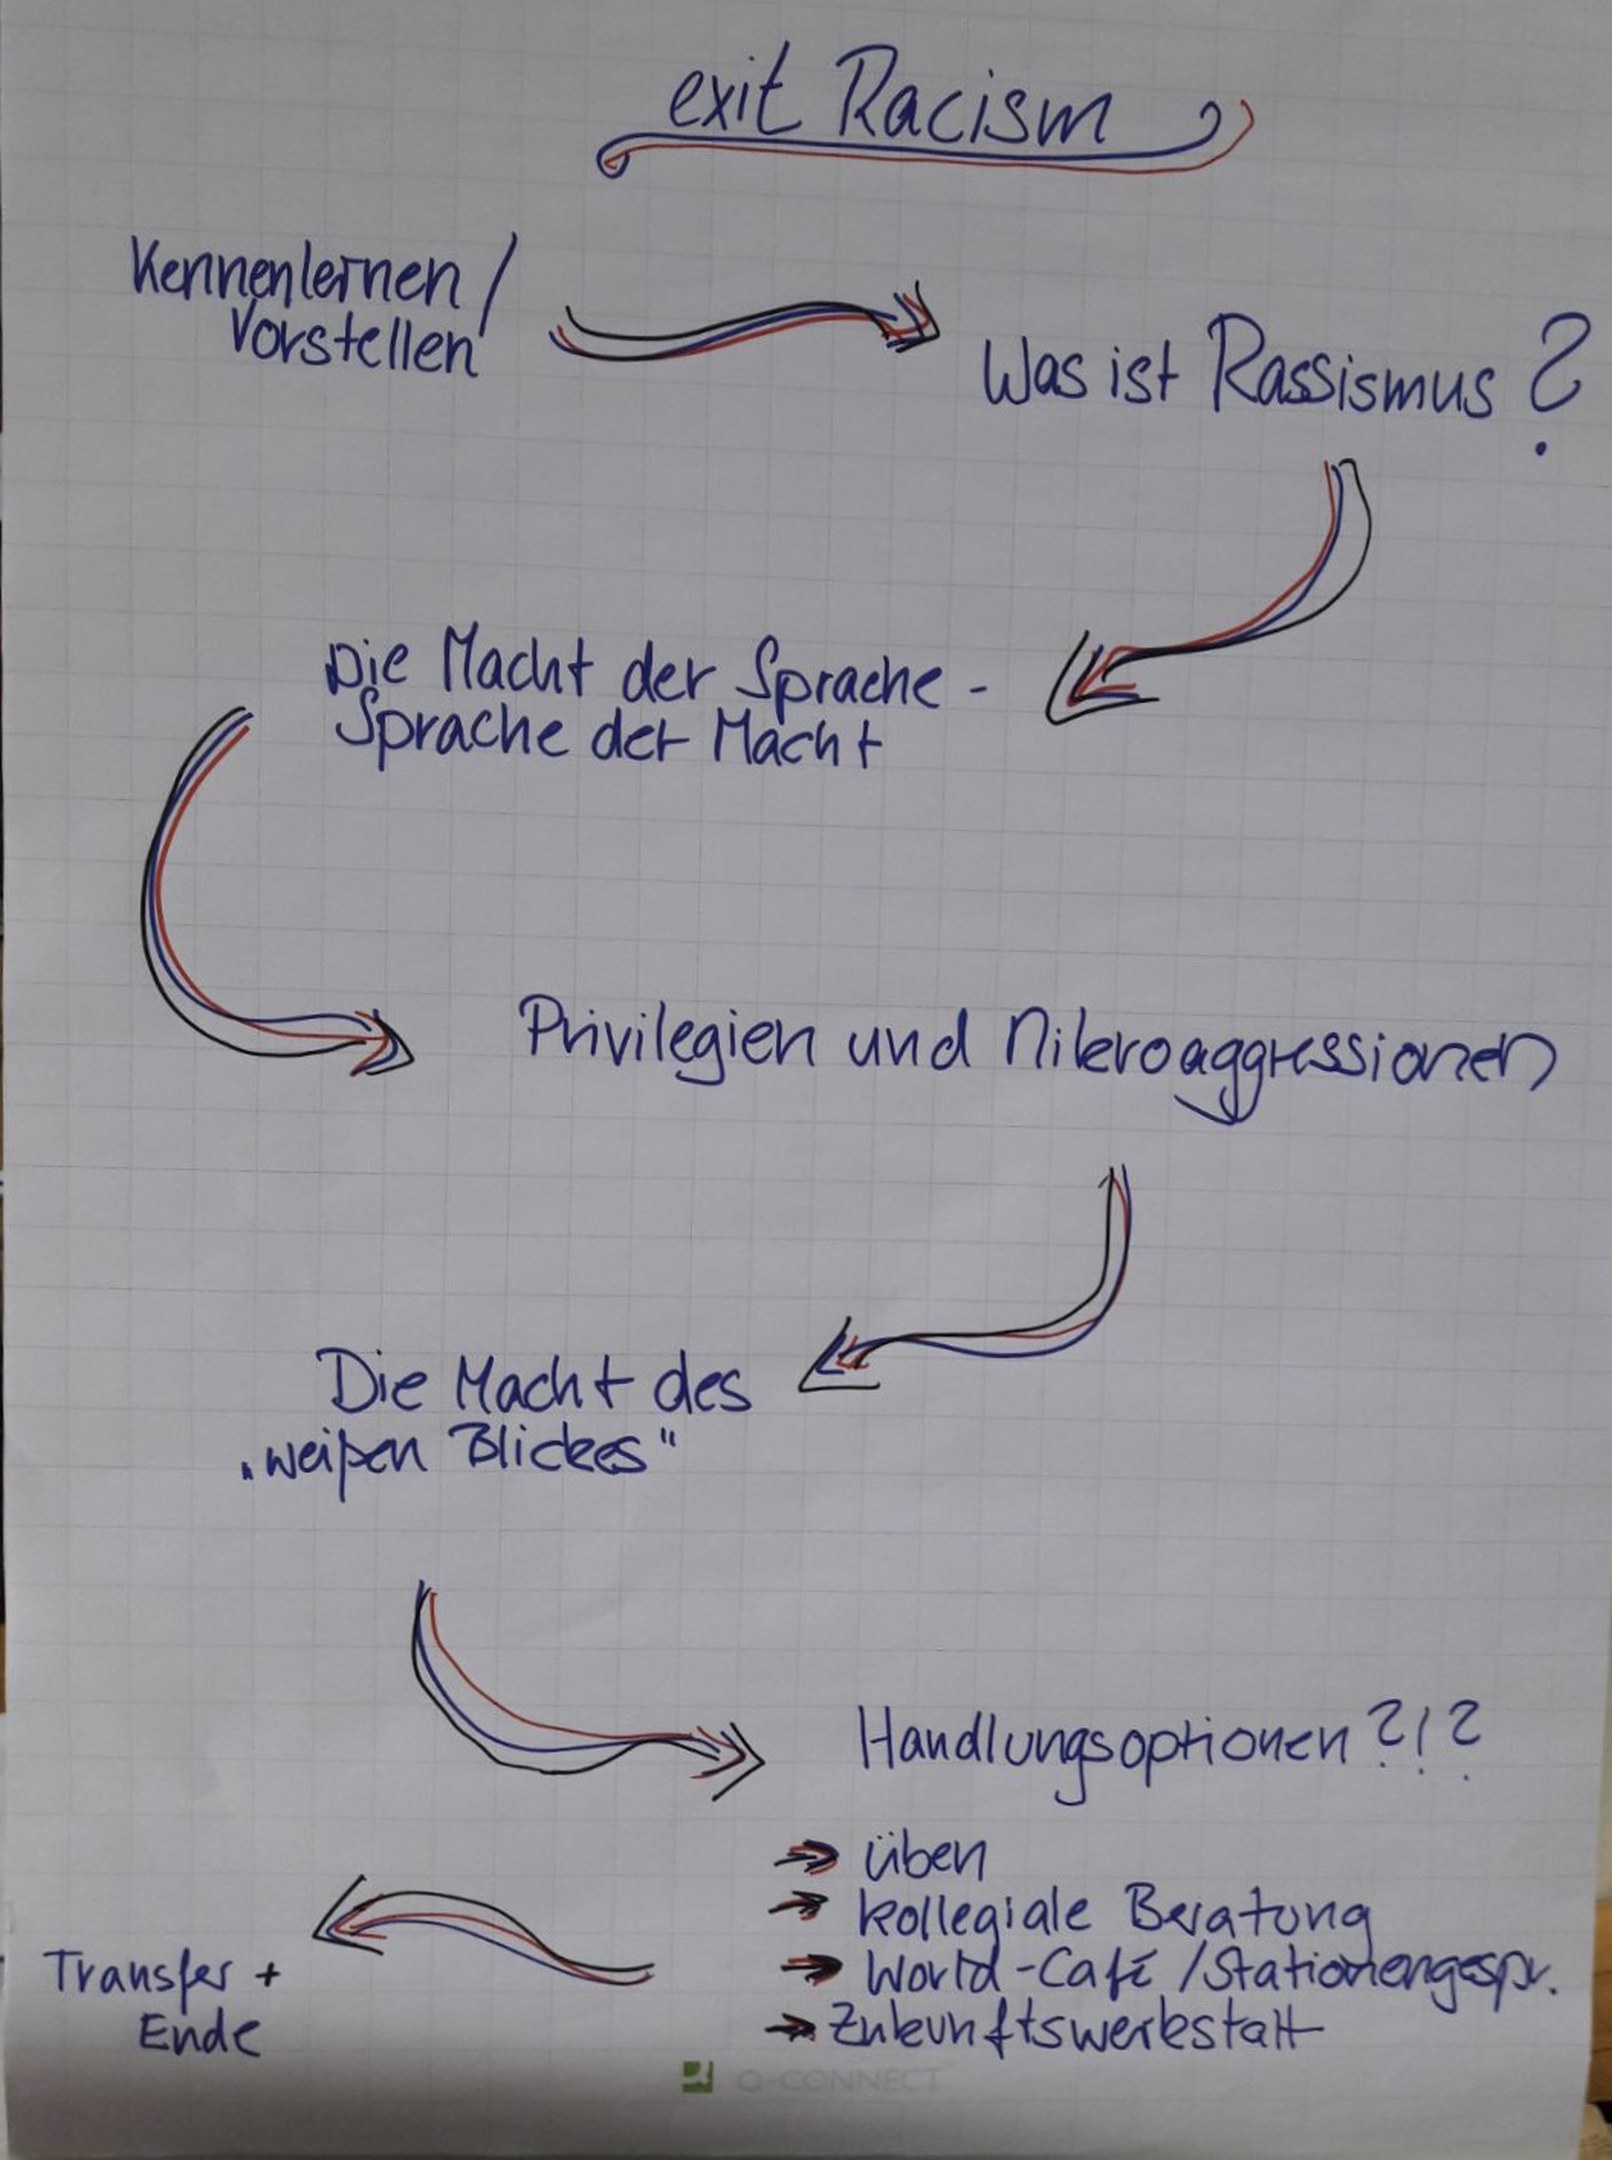 exit Racism
Kennenlernen /
Vorstellen
Was ist Rassismus ?
Die Macht der Sprache -
Sprache der Macht
Privilegien und Mikroaggressionen
Die Macht des
„weißen Blickes"
Handlungsoptionen ?!?
→ üben
→ kollegiale Beratung
→ World-Café / Stationengespr.
→ Zukunftswerkstatt
Transfer +
Ende
Q-CONNECT